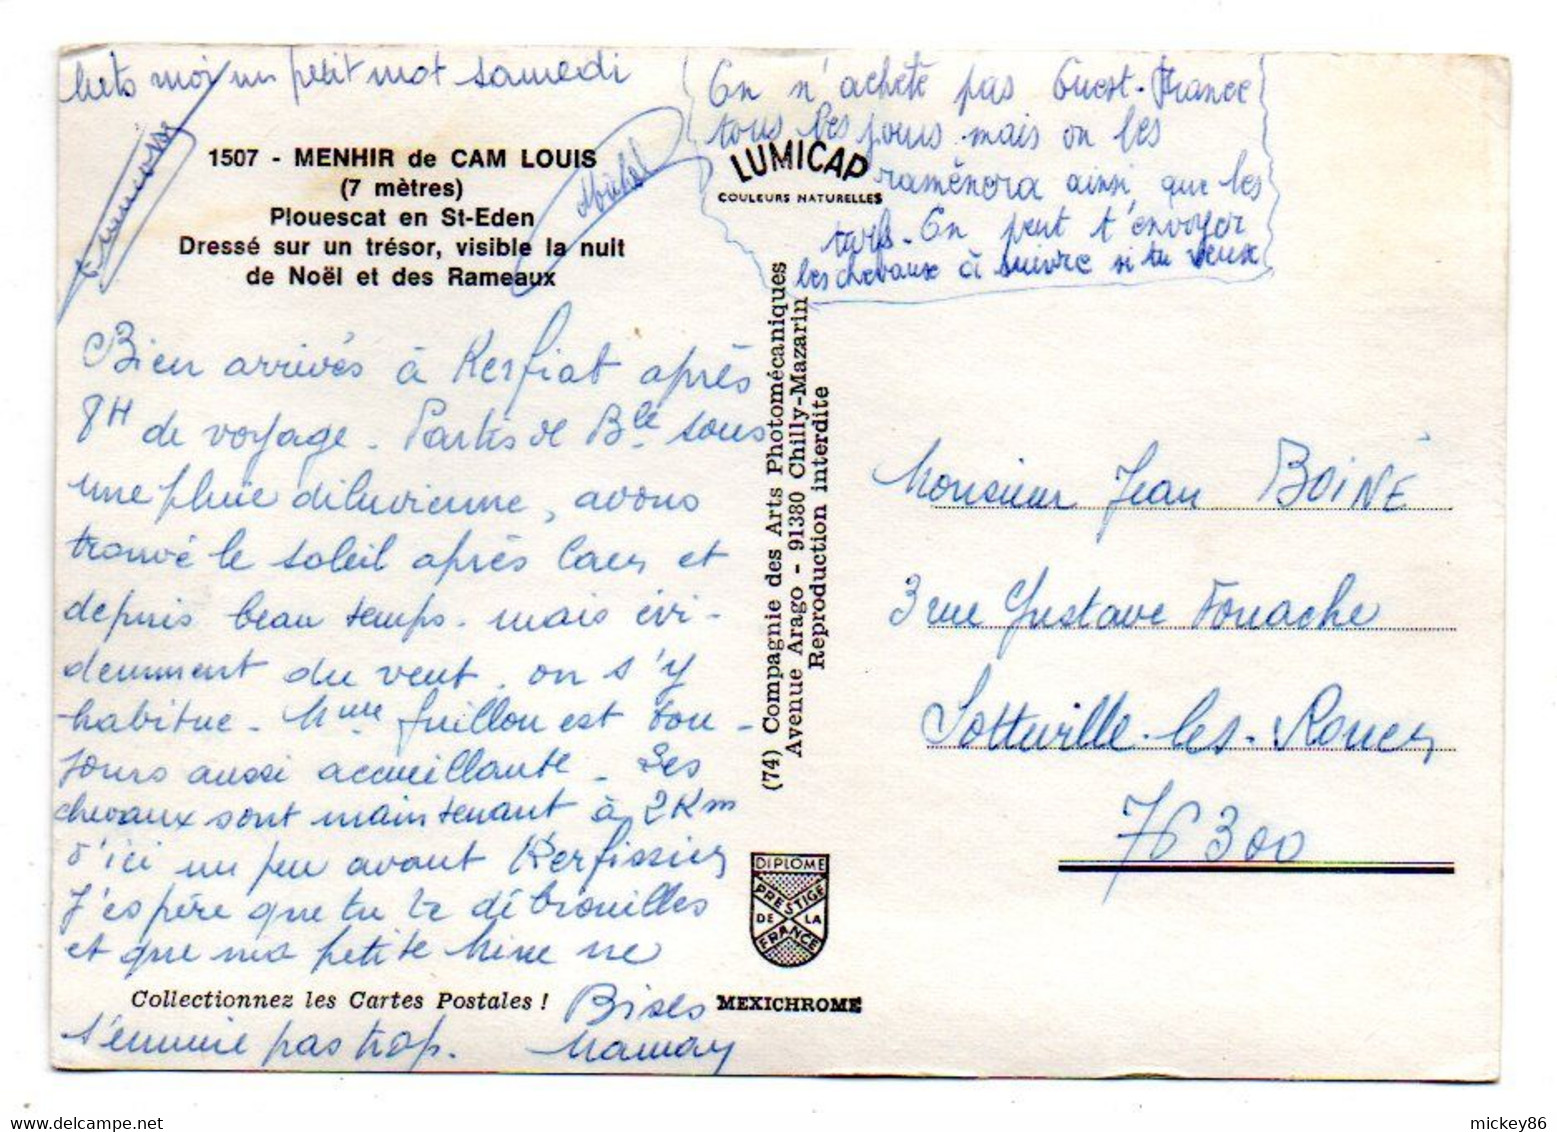 Mets moi un petit mot samedi
1507 - MENHIR de CAM LOUIS
(7 mètres)
Plouescat en St-Eden
Dressé sur un trésor, visible la nuit
de Noël et des Rameaux
Michel
Bien arrivés à Kerfiat après
8H de voyage. Partis de Blle sous
une pluie diluvienne, avons
trouvé le soleil après Caen et
depuis beau temps. mais évi-
demment du vent, on s'y
habitue. Mme Guillou est tou-
jours aussi accueillante. Les
chevaux sont maintenant à 2 Km
d'ici un peu avant Kerfissien
J'espère que tu te débrouilles
et que ma petite Mine ne
Collectionnez les Cartes Postales !
s'ennuie pas trop.
Bises
Maman
On n'achète pas Ouest-France
tous les jours mais on les
ramènera ainsi que les
turfs. On peut t'envoyer
les chevaux à suivre si tu veux
LUMICAP
COULEURS NATURELLES
(74) Compagnie des Arts Photomécaniques
Avenue Arago - 91380 Chilly-Mazarin
Reproduction interdite
DIPLOME
PRESTIGE
DE LA
FRANCE
MEXICHROME
Monsieur Jean BOINÉ
3 rue Gustave Fouache
Sotteville-les-Rouen
76300
mickey86